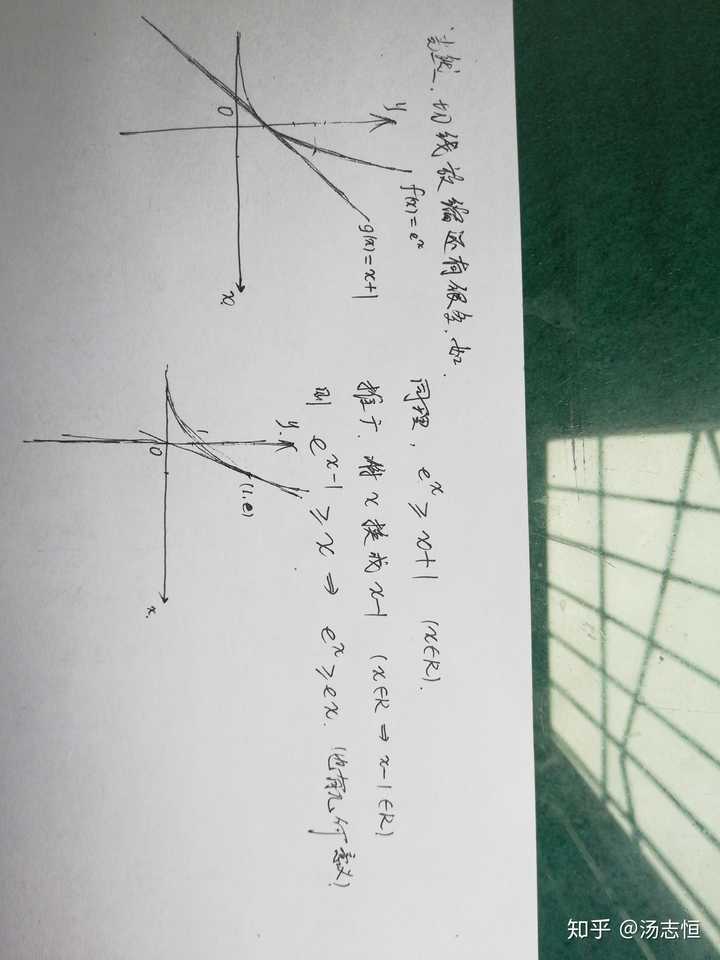 当然,切线放缩还有很多,如
y
f(x)=eˣ
g(x)=x+1
O
x
同理, eˣ≥x+1 (x∈R).
推广.将x换成x-1 (x∈R⇒x-1∈R)
则 eˣ⁻¹≥x ⇒ eˣ≥ex. (也有几何意义)
y
1
(1,e)
O
x.
知乎 @汤志恒